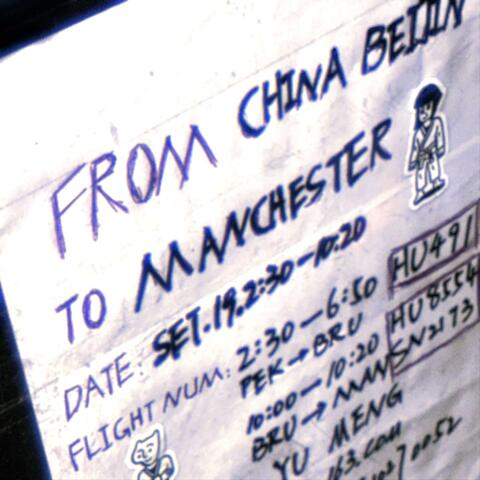 FROM CHINA BEIJIN
TO MANCHESTER
DATE: SET.19.2:30-10:20
FLIGHT NUM: 2:30-6:50 HU491
PEK→BRU HU8554
10:00-10:20 SN2173
BRU→MAN
YU MENG
163.com